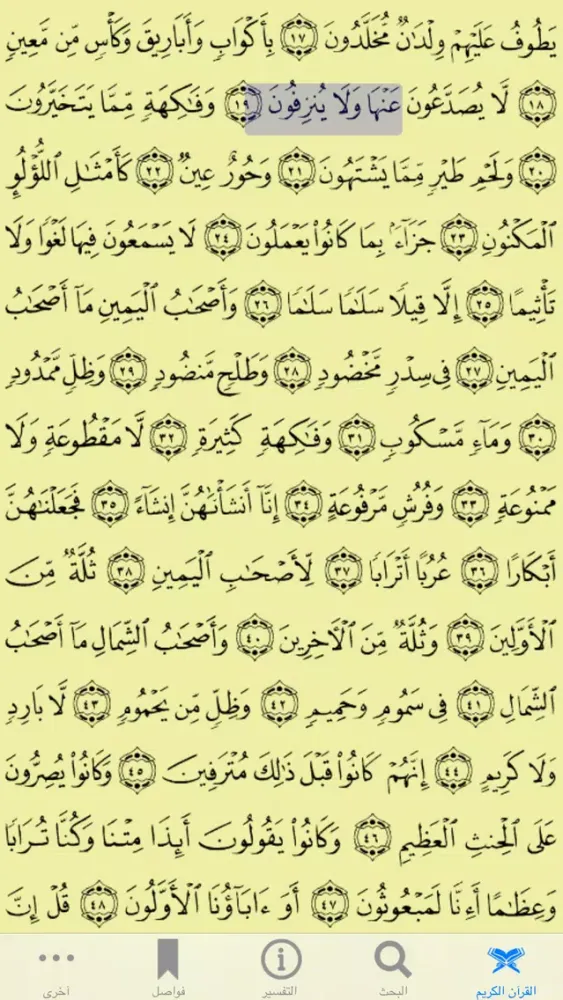 يَطُوفُ عَلَيْهِمْ وِلْدَٰنٌ مُّخَلَّدُونَ ١٧ بِأَكْوَابٍ وَأَبَارِيقَ وَكَأْسٍ مِّن مَّعِينٍ
١٨ لَّا يُصَدَّعُونَ عَنْهَا وَلَا يُنزِفُونَ ١٩ وَفَٰكِهَةٍ مِّمَّا يَتَخَيَّرُونَ
٢٠ وَلَحْمِ طَيْرٍ مِّمَّا يَشْتَهُونَ ٢١ وَحُورٌ عِينٌ ٢٢ كَأَمْثَٰلِ ٱللُّؤْلُؤِ
ٱلْمَكْنُونِ ٢٣ جَزَآءًۢ بِمَا كَانُوا۟ يَعْمَلُونَ ٢٤ لَا يَسْمَعُونَ فِيهَا لَغْوًا وَلَا
تَأْثِيمًا ٢٥ إِلَّا قِيلًا سَلَٰمًا سَلَٰمًا ٢٦ وَأَصْحَٰبُ ٱلْيَمِينِ مَآ أَصْحَٰبُ
ٱلْيَمِينِ ٢٧ فِى سِدْرٍ مَّخْضُودٍ ٢٨ وَطَلْحٍ مَّنضُودٍ ٢٩ وَظِلٍّ مَّمْدُودٍ
٣٠ وَمَآءٍ مَّسْكُوبٍ ٣١ وَفَٰكِهَةٍ كَثِيرَةٍ ٣٢ لَّا مَقْطُوعَةٍ وَلَا
مَمْنُوعَةٍ ٣٣ وَفُرُشٍ مَّرْفُوعَةٍ ٣٤ إِنَّآ أَنشَأْنَٰهُنَّ إِنشَآءً ٣٥ فَجَعَلْنَٰهُنَّ
أَبْكَارًا ٣٦ عُرُبًا أَتْرَابًا ٣٧ لِّأَصْحَٰبِ ٱلْيَمِينِ ٣٨ ثُلَّةٌ مِّنَ
ٱلْأَوَّلِينَ ٣٩ وَثُلَّةٌ مِّنَ ٱلْءَاخِرِينَ ٤٠ وَأَصْحَٰبُ ٱلشِّمَالِ مَآ أَصْحَٰبُ
ٱلشِّمَالِ ٤١ فِى سَمُومٍ وَحَمِيمٍ ٤٢ وَظِلٍّ مِّن يَحْمُومٍ ٤٣ لَّا بَارِدٍ
وَلَا كَرِيمٍ ٤٤ إِنَّهُمْ كَانُوا۟ قَبْلَ ذَٰلِكَ مُتْرَفِينَ ٤٥ وَكَانُوا۟ يُصِرُّونَ
عَلَى ٱلْحِنثِ ٱلْعَظِيمِ ٤٦ وَكَانُوا۟ يَقُولُونَ أَئِذَا مِتْنَا وَكُنَّا تُرَابًا
وَعِظَٰمًا أَءِنَّا لَمَبْعُوثُونَ ٤٧ أَوَ ءَابَآؤُنَا ٱلْأَوَّلُونَ ٤٨ قُلْ إِنَّ
القرآن الكريم البحث التفسير فواصل أخرى